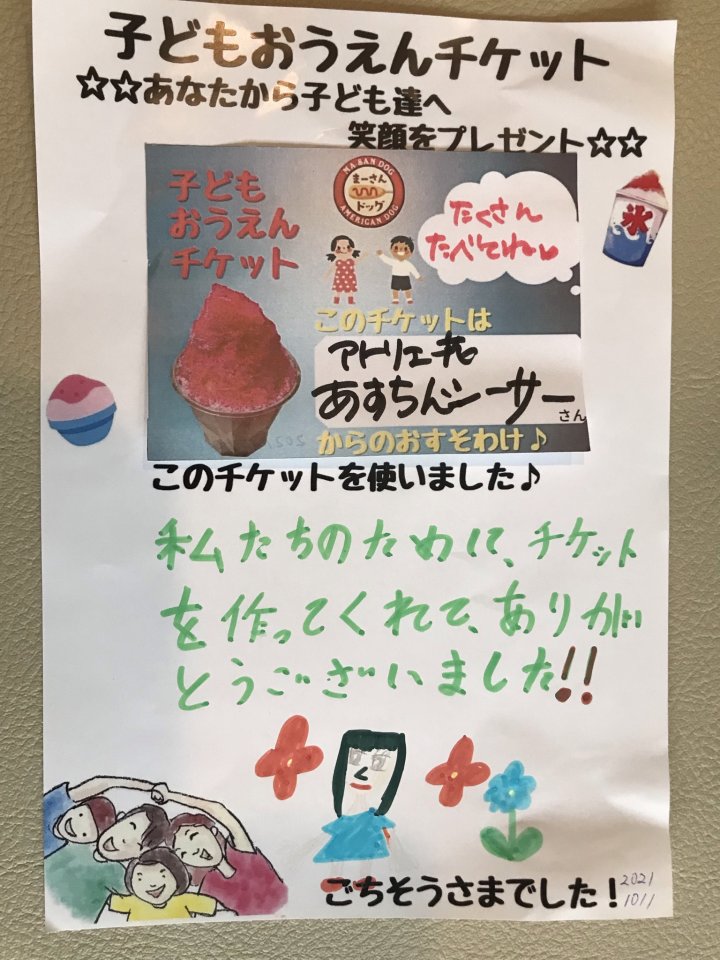 子どもおうえんチケット
☆☆あなたから子ども達へ
笑顔をプレゼント☆☆
子ども
おうえん
チケット
MA-SAN DOG
まーさん
ドッグ
AMERICAN DOG
たくさん
たべてね♥
氷
このチケットは
アトリエ
あすちんシーサー
さん
からのおすそわけ♪
このチケットを使いました♪
私たちのために、チケット
を作ってくれて、ありが
とうございました!!
ごちそうさまでした！
2021
10/1